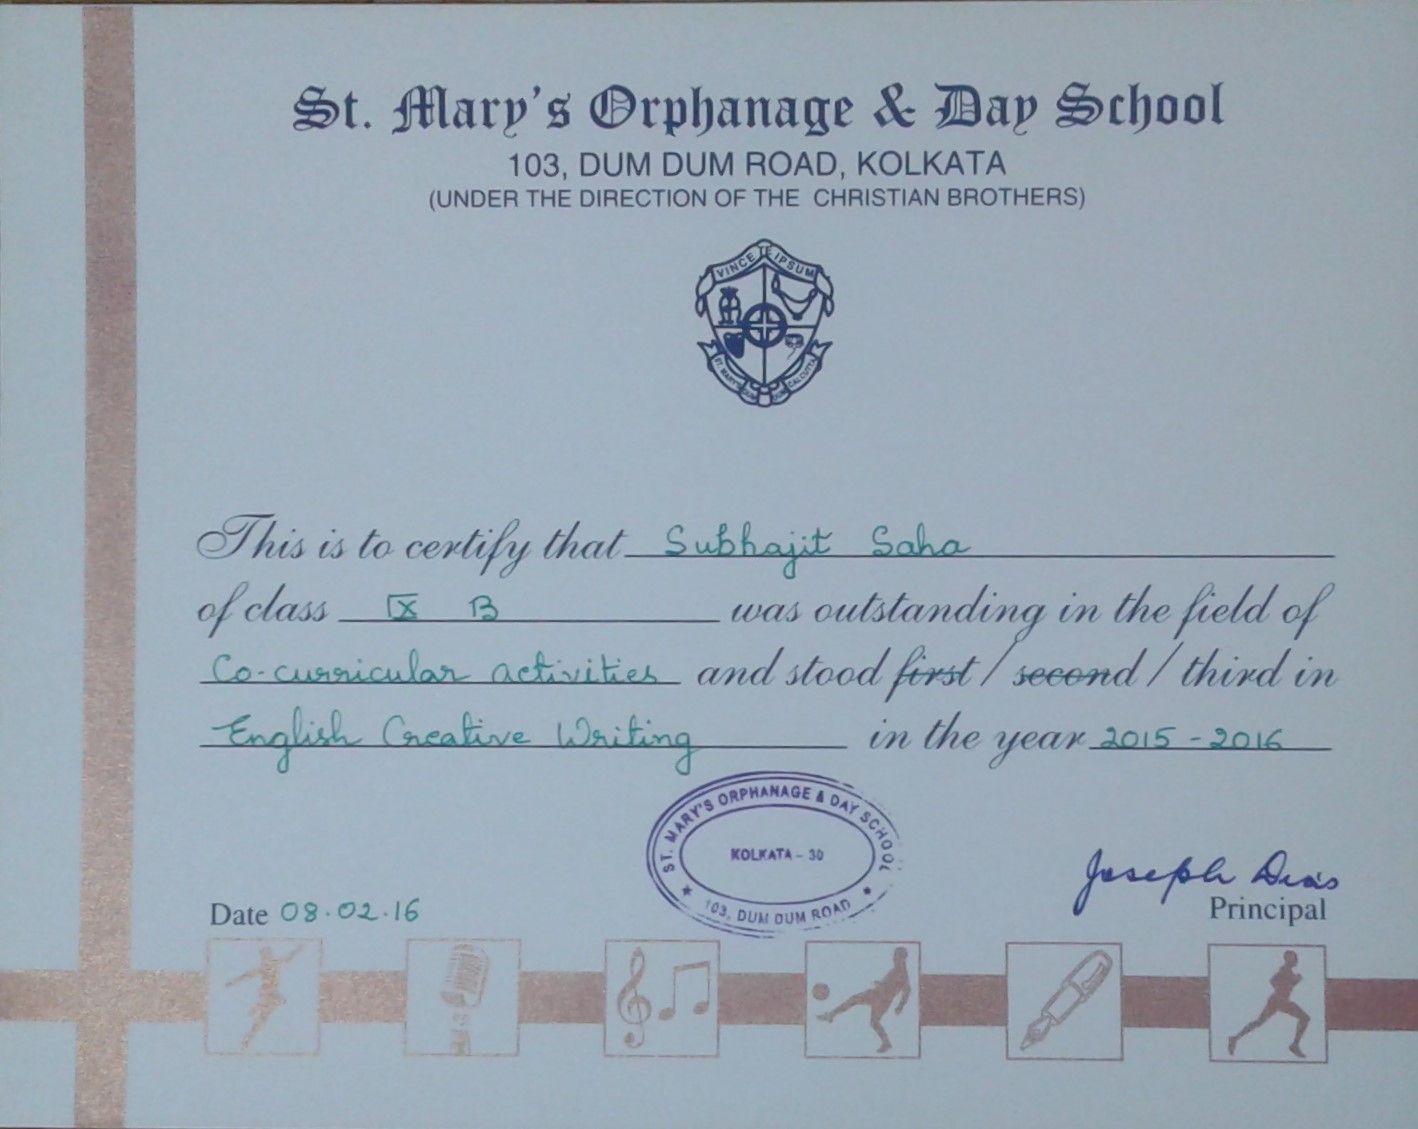 St. Mary's Orphanage & Day School
103, DUM DUM ROAD, KOLKATA
(UNDER THE DIRECTION OF THE CHRISTIAN BROTHERS)
VINCE TE IPSUM
ST. MARY'S DUM DUM CALCUTTA
This is to certify that Subhajit Saha
of class IX B was outstanding in the field of
Co-curricular activities and stood first / second / third in
English Creative Writing in the year 2015 - 2016
ST. MARY'S ORPHANAGE & DAY SCHOOL
KOLKATA - 30
103, DUM DUM ROAD
Joseph Dias
Date 08.02.16
Principal